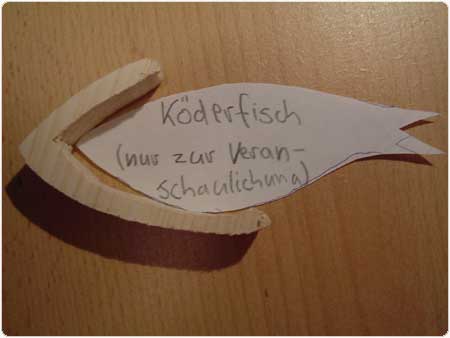 Köderfisch
(nur zur Veran-
schaulichung)